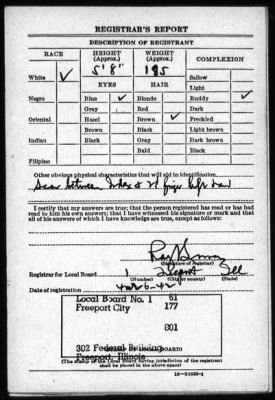 REGISTRAR'S REPORT
DESCRIPTION OF REGISTRANT
RACE HEIGHT (Approx.) WEIGHT (Approx.) COMPLEXION
5' 8" 195
White ✓ Sallow
EYES HAIR Light
Negro Blue ✓ Blonde Ruddy ✓
Gray Red Dark
Oriental Hazel Brown ✓ Freckled
Brown Black Light brown
Indian Black Gray Dark brown
Bald Black
Filipino
Other obvious physical characteristics that will aid in identification
Scar between Index & finger left
I certify that my answers are true; that the person registered has read or has had
read to him his own answers; that I have witnessed his signature or mark and that
all of his answers of which I have knowledge are true, except as follows:
Ray
(Signature of registrar)
Registrar for Local Board 1 Freeport Ill
(Number) (City or county) (State)
Date of registration 4-26-42
Local Board No. 1 61
Freeport City 177
801
302 Federal Building
Freeport, Illinois
(STAMP OF LOCAL BOARD)
(The stamp of the Local Board having jurisdiction of the registrant
shall be placed in the above space)
16-21630-1